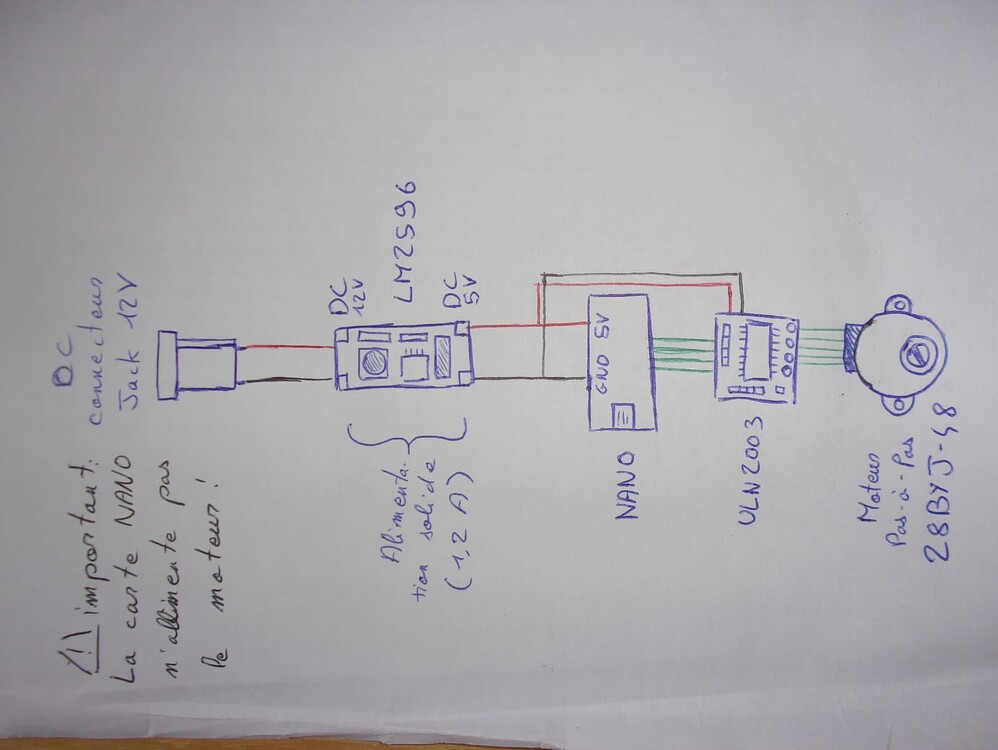 ⚠ important:
La carte NANO
n'allimente pas
le moteur!
DC
connecteur
Jack 12V
DC
12V
LM2596
DC
5V
Alimenta-
tion solide
(1,2 A)
GND 5V
NANO
ULN2003
Moteur
Pas-à-Pas
28BYJ-48